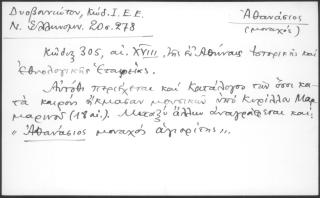 Δυοβουνιώτου, Κώδ. Ι.Ε.Ε.
Ν. Ἑλληνομν. 20 σ. 278
Ἀθανάσιος
(μοναχός)
Κώδιξ 305, αἰ. XVIII, τῆς ἐν Ἀθήναις Ἱστορικῆς καὶ
Ἐθνολογικῆς Ἑταιρείας.
Αὐτόθι περιέχεται καὶ Κατάλογος τῶν ὅσοι κα-
τὰ καιρὸν ἤκμασαν μουσικῶν ὑπὸ Κυρίλλου Μαρ-
μαρινοῦ (18 αἰ.). Μεταξὺ ἄλλων ἀναγράφεται καὶ:
"Ἀθανάσιος μοναχὸς ἁγιορίτης".